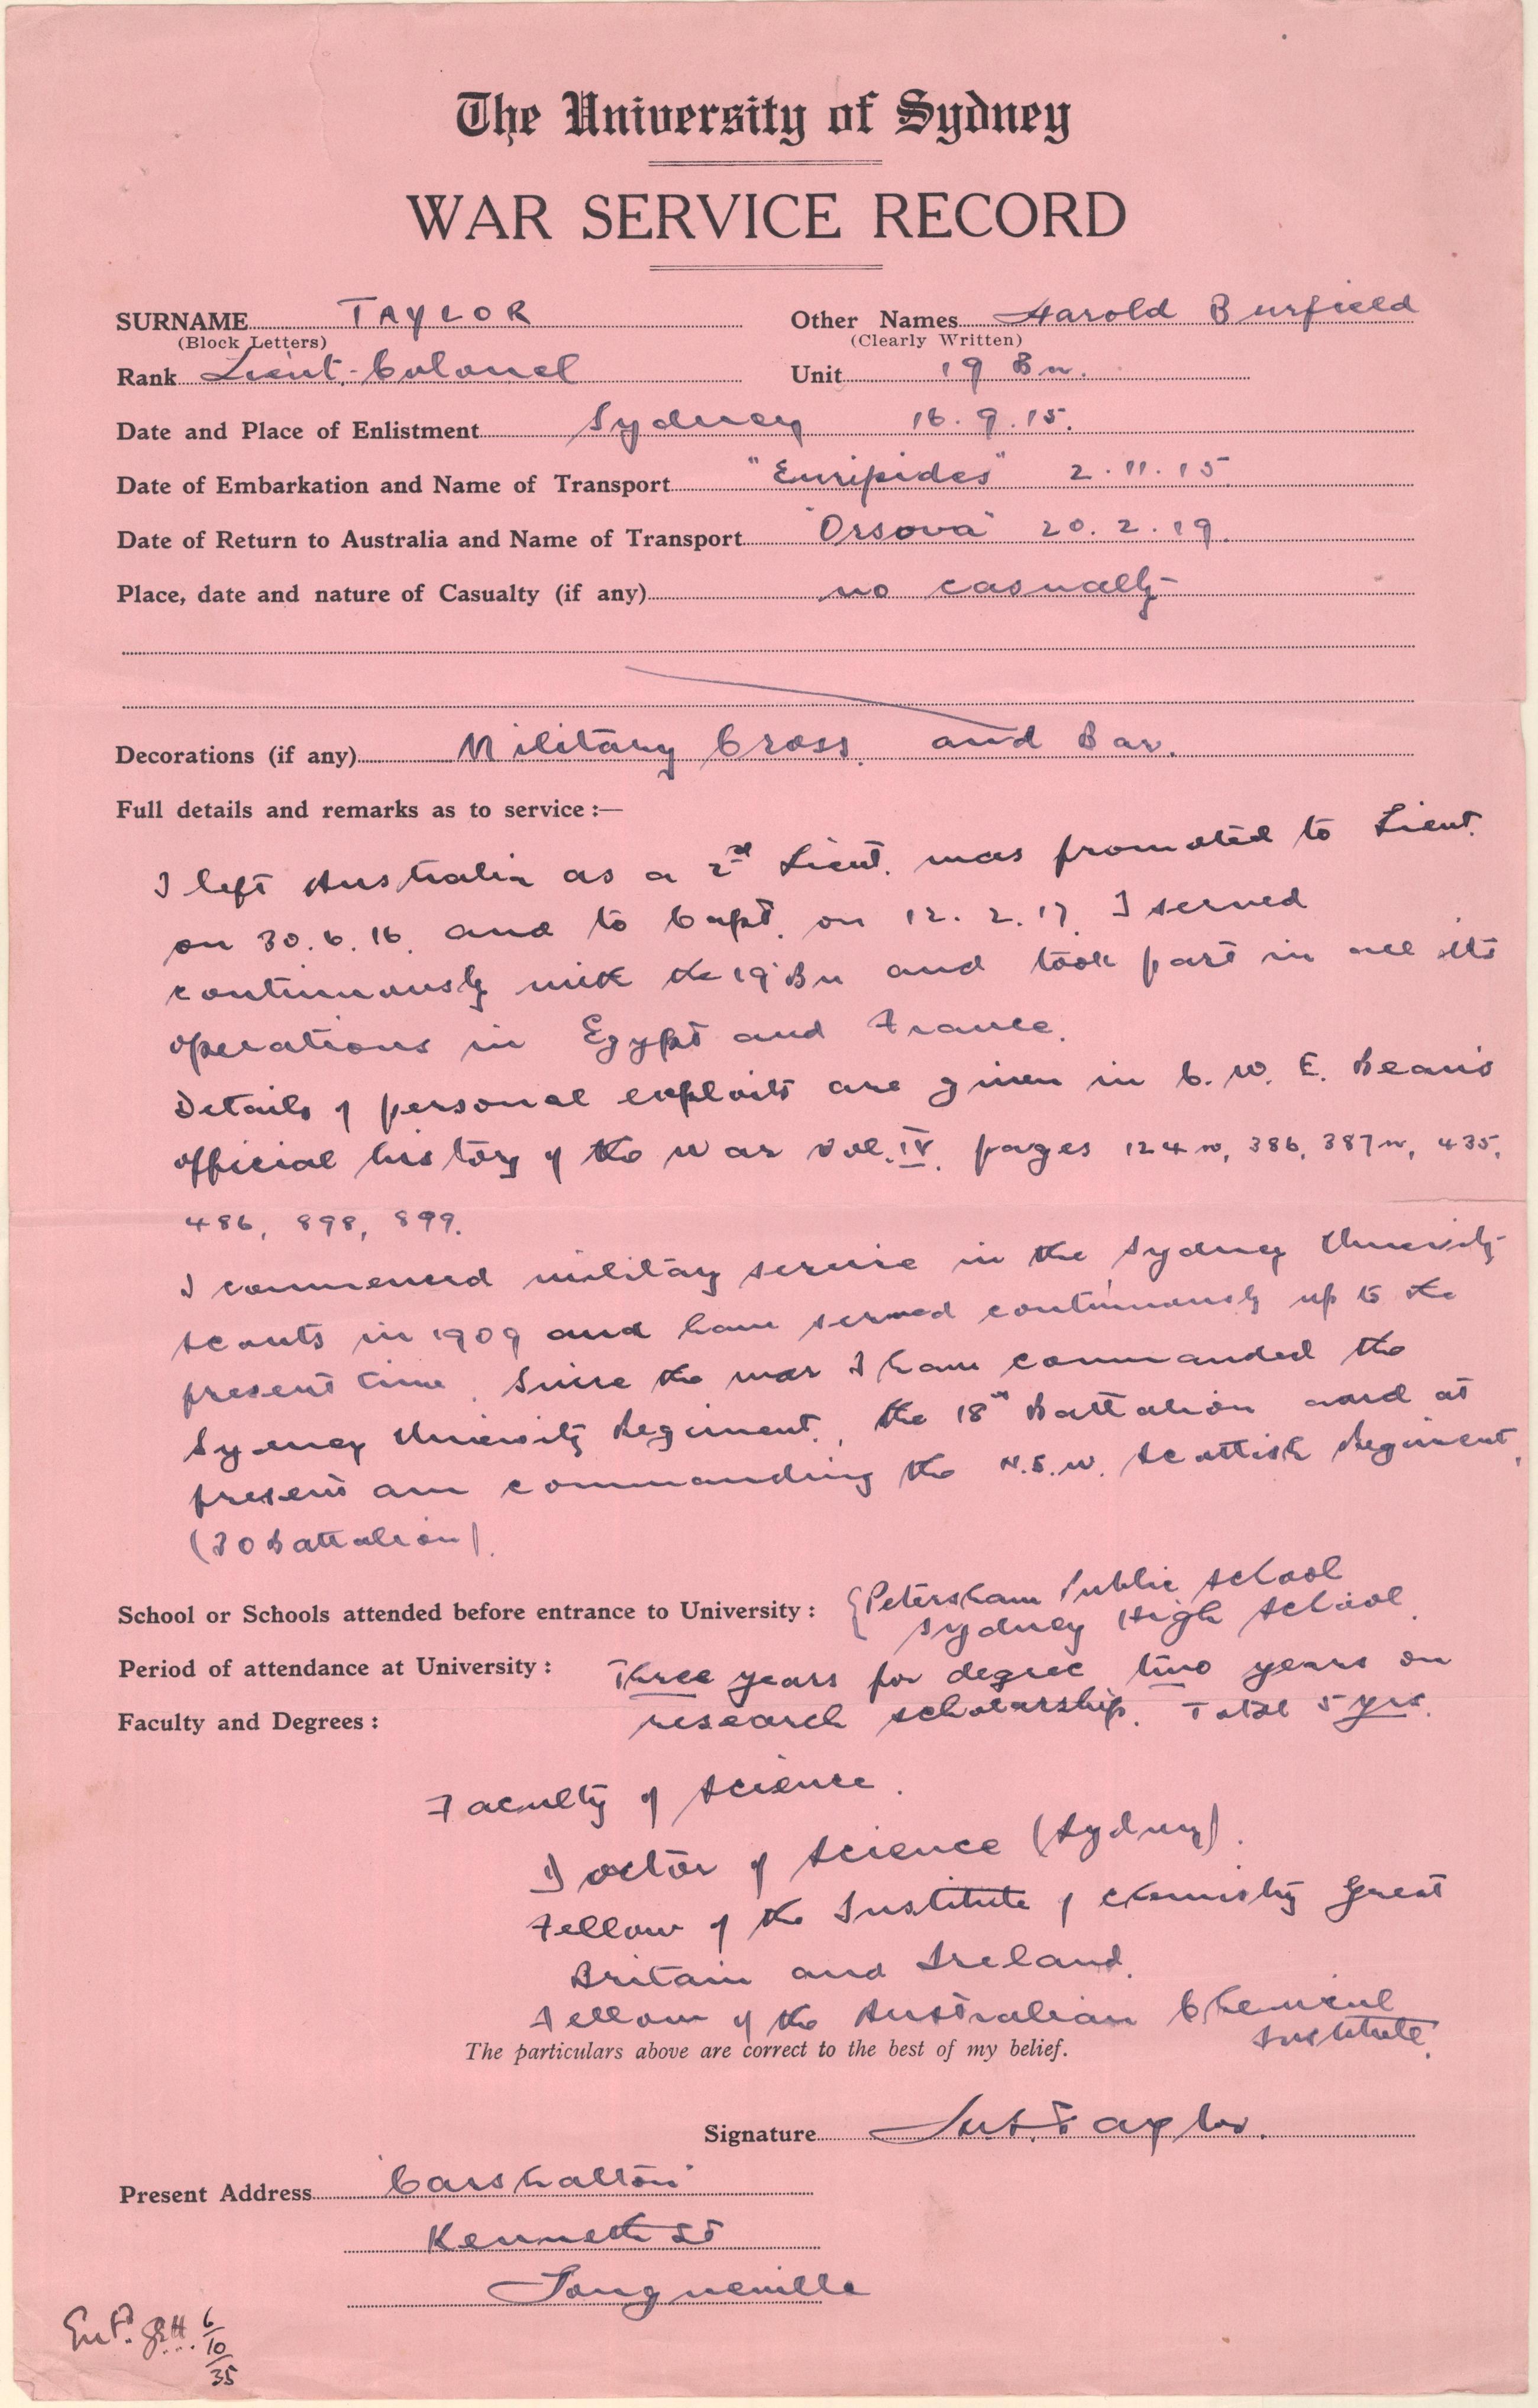 The University of Sydney
WAR SERVICE RECORD
SURNAME TAYLOR Other Names Harold Burfield
(Block Letters) (Clearly Written)
Rank Lieut.-Colonel Unit 19 Bn.
Date and Place of Enlistment Sydney 16.9.15.
Date of Embarkation and Name of Transport "Euripides" 2.11.15.
Date of Return to Australia and Name of Transport "Orsova" 20.2.19.
Place, date and nature of Casualty (if any) no casualty
Decorations (if any) Military Cross. and Bar.
Full details and remarks as to service:—
I left Australia as a 2nd Lieut. was promoted to Lieut.
on 30.6.16. and to Capt. on 12.2.17. I served
continuously with the 19 Bn and took part in all its
operations in Egypt and France.
Details of personal exploits are given in C. W. E. Bean's
official history of the war Vol. IV. pages 124n, 386, 387n, 435,
486, 898, 899.
I commenced military service in the Sydney University
Scouts in 1909 and have served continuously up to the
present time. Since the war I have commanded the
Sydney University Regiment, the 18th Battalion and at
present am commanding the N.S.W. Scottish Regiment,
(30 Battalion).
School or Schools attended before entrance to University: {Petersham Public School
Sydney High School.
Period of attendance at University: Three years for degree two years on
Faculty and Degrees: research scholarship. Total 5 yrs.
Faculty of Science.
Doctor of Science (Sydney).
Fellow of the Institute of Chemistry Great
Britain and Ireland.
Fellow of the Australian Chemical
Institute.
The particulars above are correct to the best of my belief.
Signature H.B. Taylor.
Present Address "Carshalton"
Kenneth St
Longueville
Entd. 6/10/35